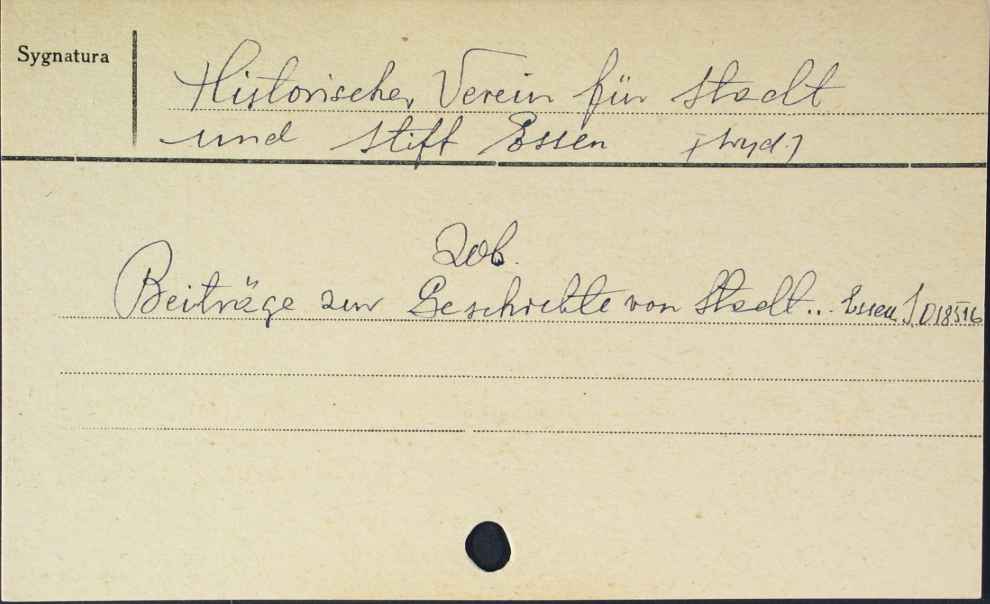 Sygnatura
Historischer Verein für Stadt
und Stift Essen [wyd.]
Zob.
Beiträge zur Geschichte von Stadt... Essen